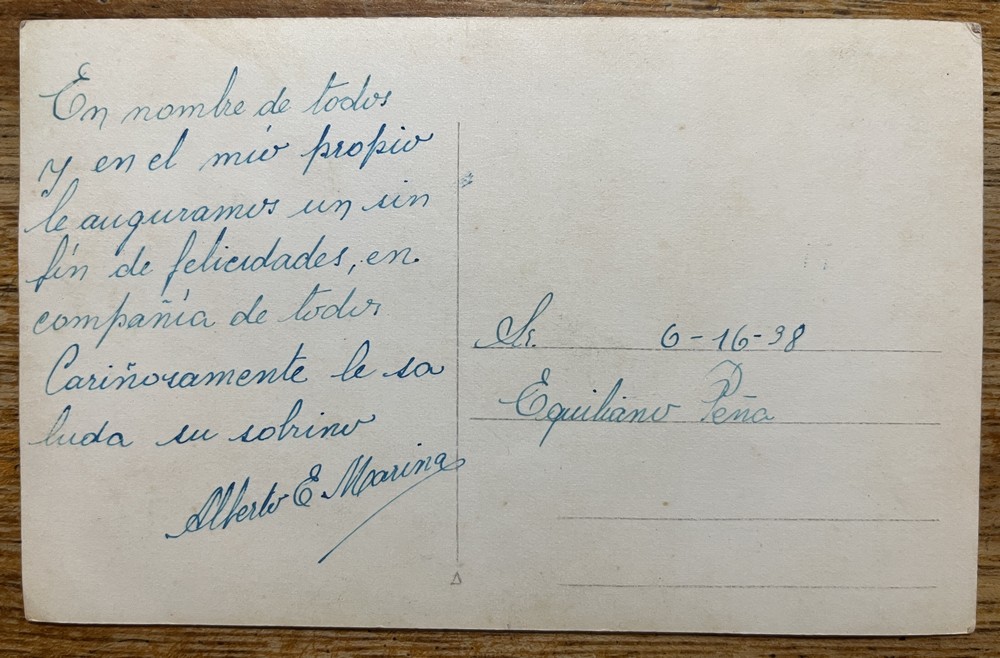 En nombre de todos
y en el mio propio
le auguramos un sin
fín de felicidades, en
compañía de todos
Cariñosamente le sa
luda su sobrino
Alberto E Marina
Sr. 6-16-38
Equiliano Peña